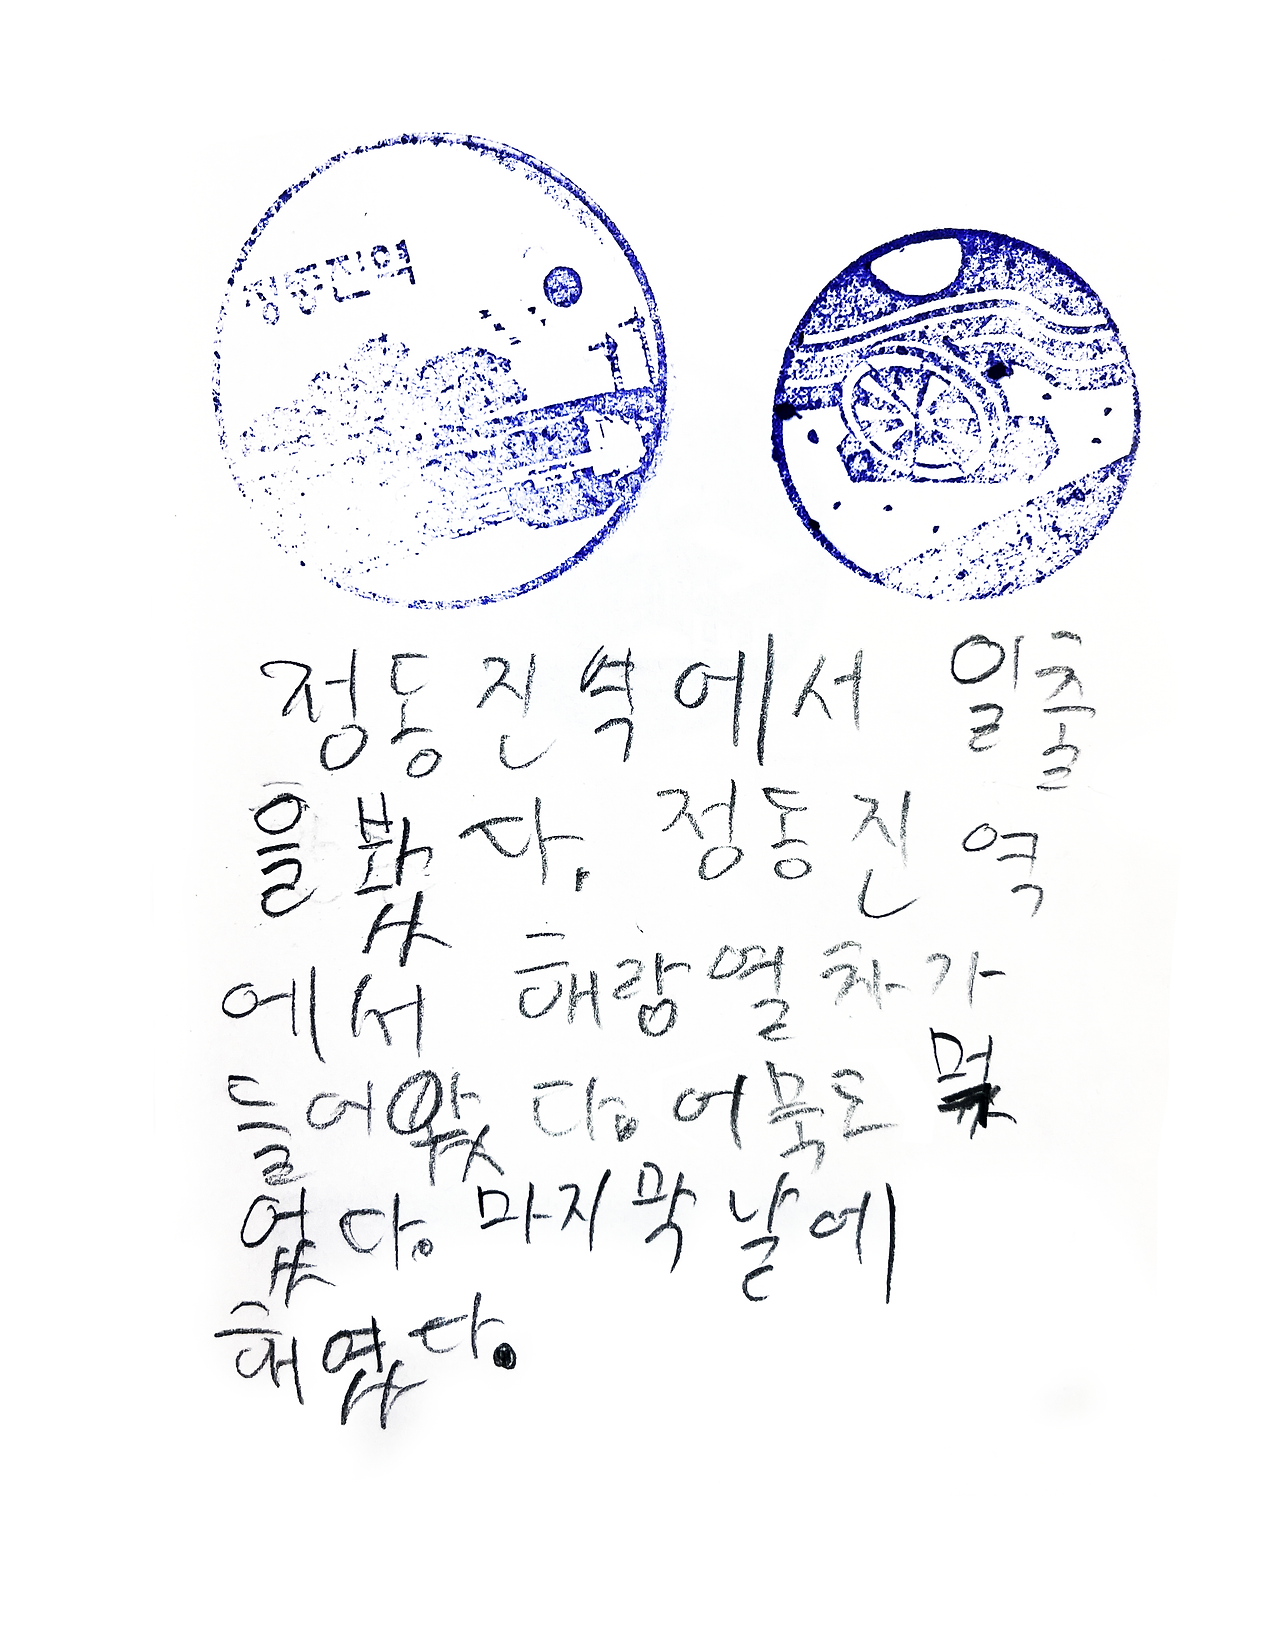 정동진역
정동진역에서 일출
을 봤다. 정동진역
에서 해랑열차가
들어왔다. 어묵도 먹
었다. 마지막 날에
해였다.